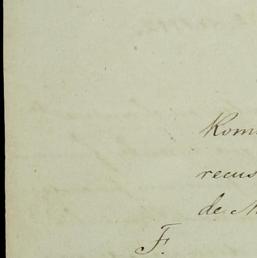 Rom
recus
de N
F.